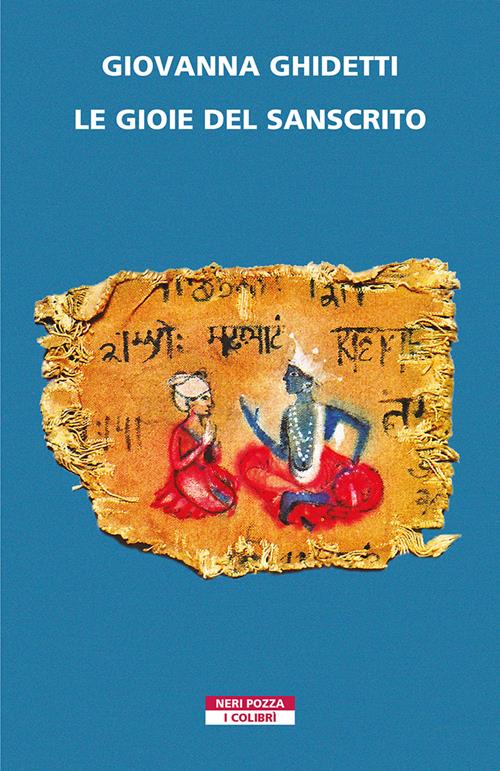 GIOVANNA GHIDETTI
LE GIOIE DEL SANSCRITO
NERI POZZA
I COLIBRÌ